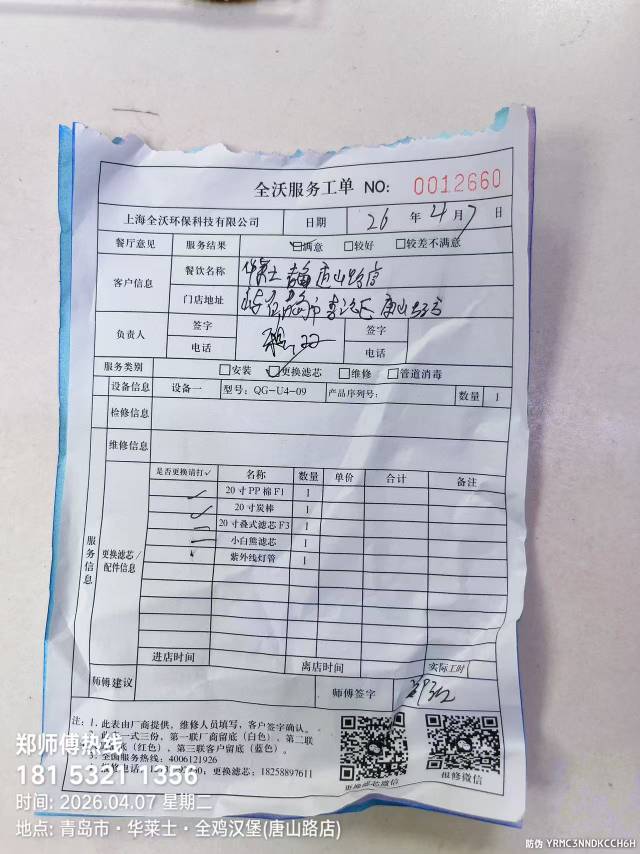 全沃服务工单 NO: 0012660
上海全沃环保科技有限公司 日期 26 年 4 月 7 日
餐厅意见 服务结果 满意 较好 较差不满意
客户信息 餐饮名称 华莱士 青岛唐山路店
门店地址 唐山路
负责人 签字 签字
电话 电话
服务类别 安装 更换滤芯 维修 管道消毒
设备信息 设备一 型号: QG-U4-09 产品序列号: 数量 1
检修信息
维修信息
服务信息
更换滤芯/配件信息
是否更换请打✓ 名称 数量 单价 合计 备注
20寸PP棉F1 1
20寸炭棒 1
20寸叠式滤芯F3 1
小白熊滤芯 1
紫外线灯管 1
进店时间 离店时间 实际工时
师傅建议 师傅签字
注: 1. 此表由厂商提供, 维修人员填写, 客户签字确认。
一式三份, 第一联厂商留底(白色), 第二联
(红色), 第三联客户留底(蓝色)。
服务热线: 4006121926
更换滤芯: 18258897611
更换滤芯微信 报修微信
郑师傅热线
181 5321 1356
时间: 2026.04.07 星期二
地点: 青岛市·华莱士·全鸡汉堡(唐山路店)
防伪 YRMC3NNDKCCH6H